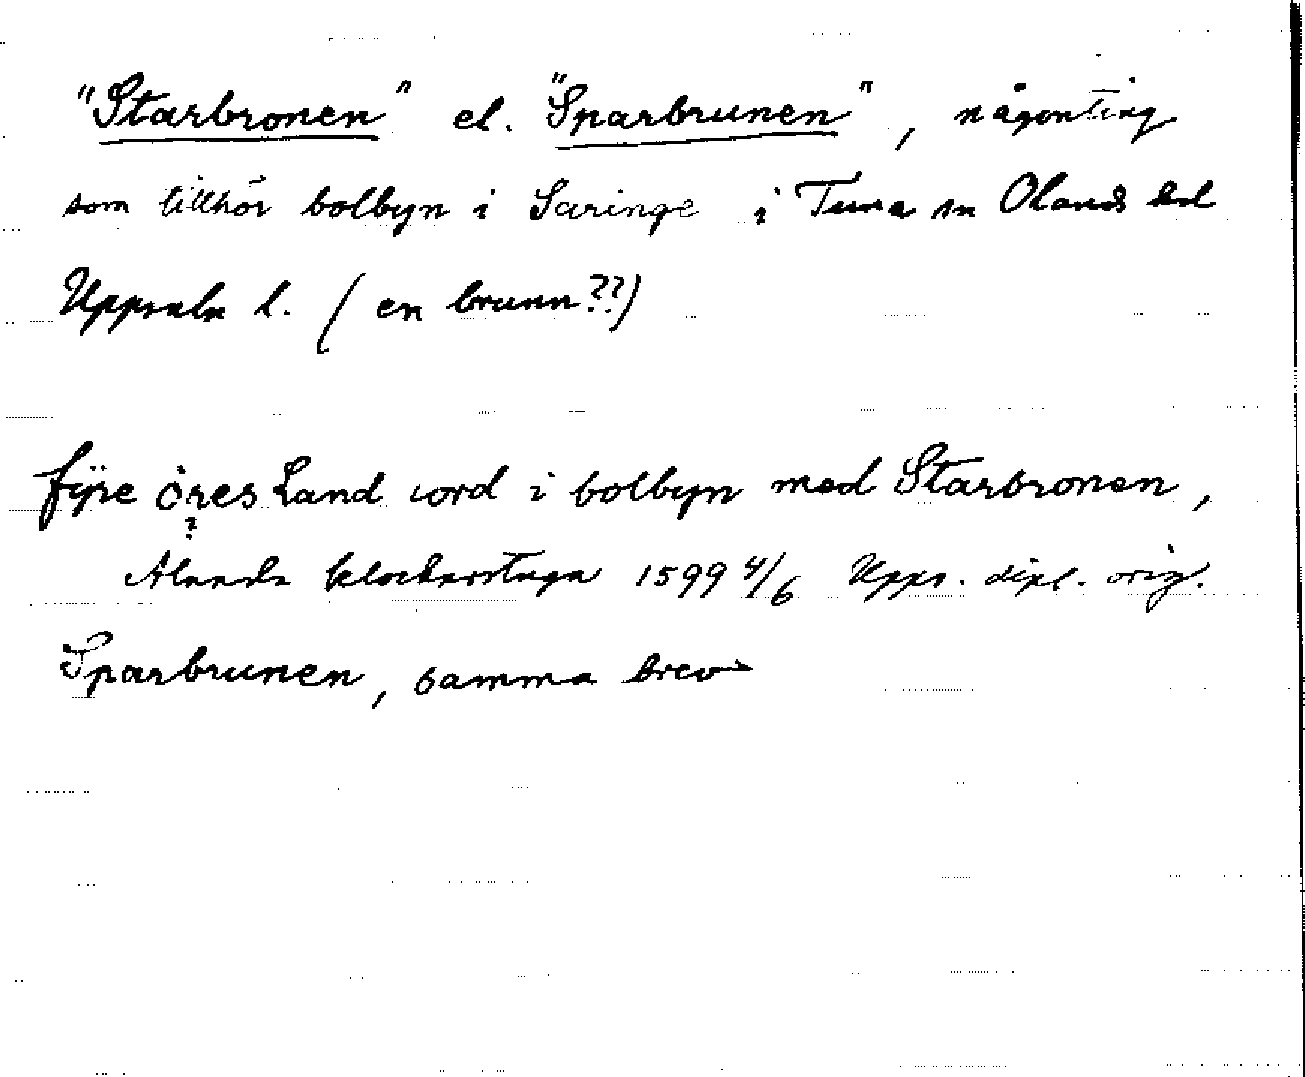 "Starbronen" el. "Sparbrunen", någonting
som tillhör bolbyn i Saringe i Tuna sn Olands hd
Uppsala l. (en brunn??)
fÿre öres Land iord i bolbyn med Starbronen,
?
Alunda klockarstuga 1599 4/6 Upps. dipl. orig.
Sparbrunen, samma brev